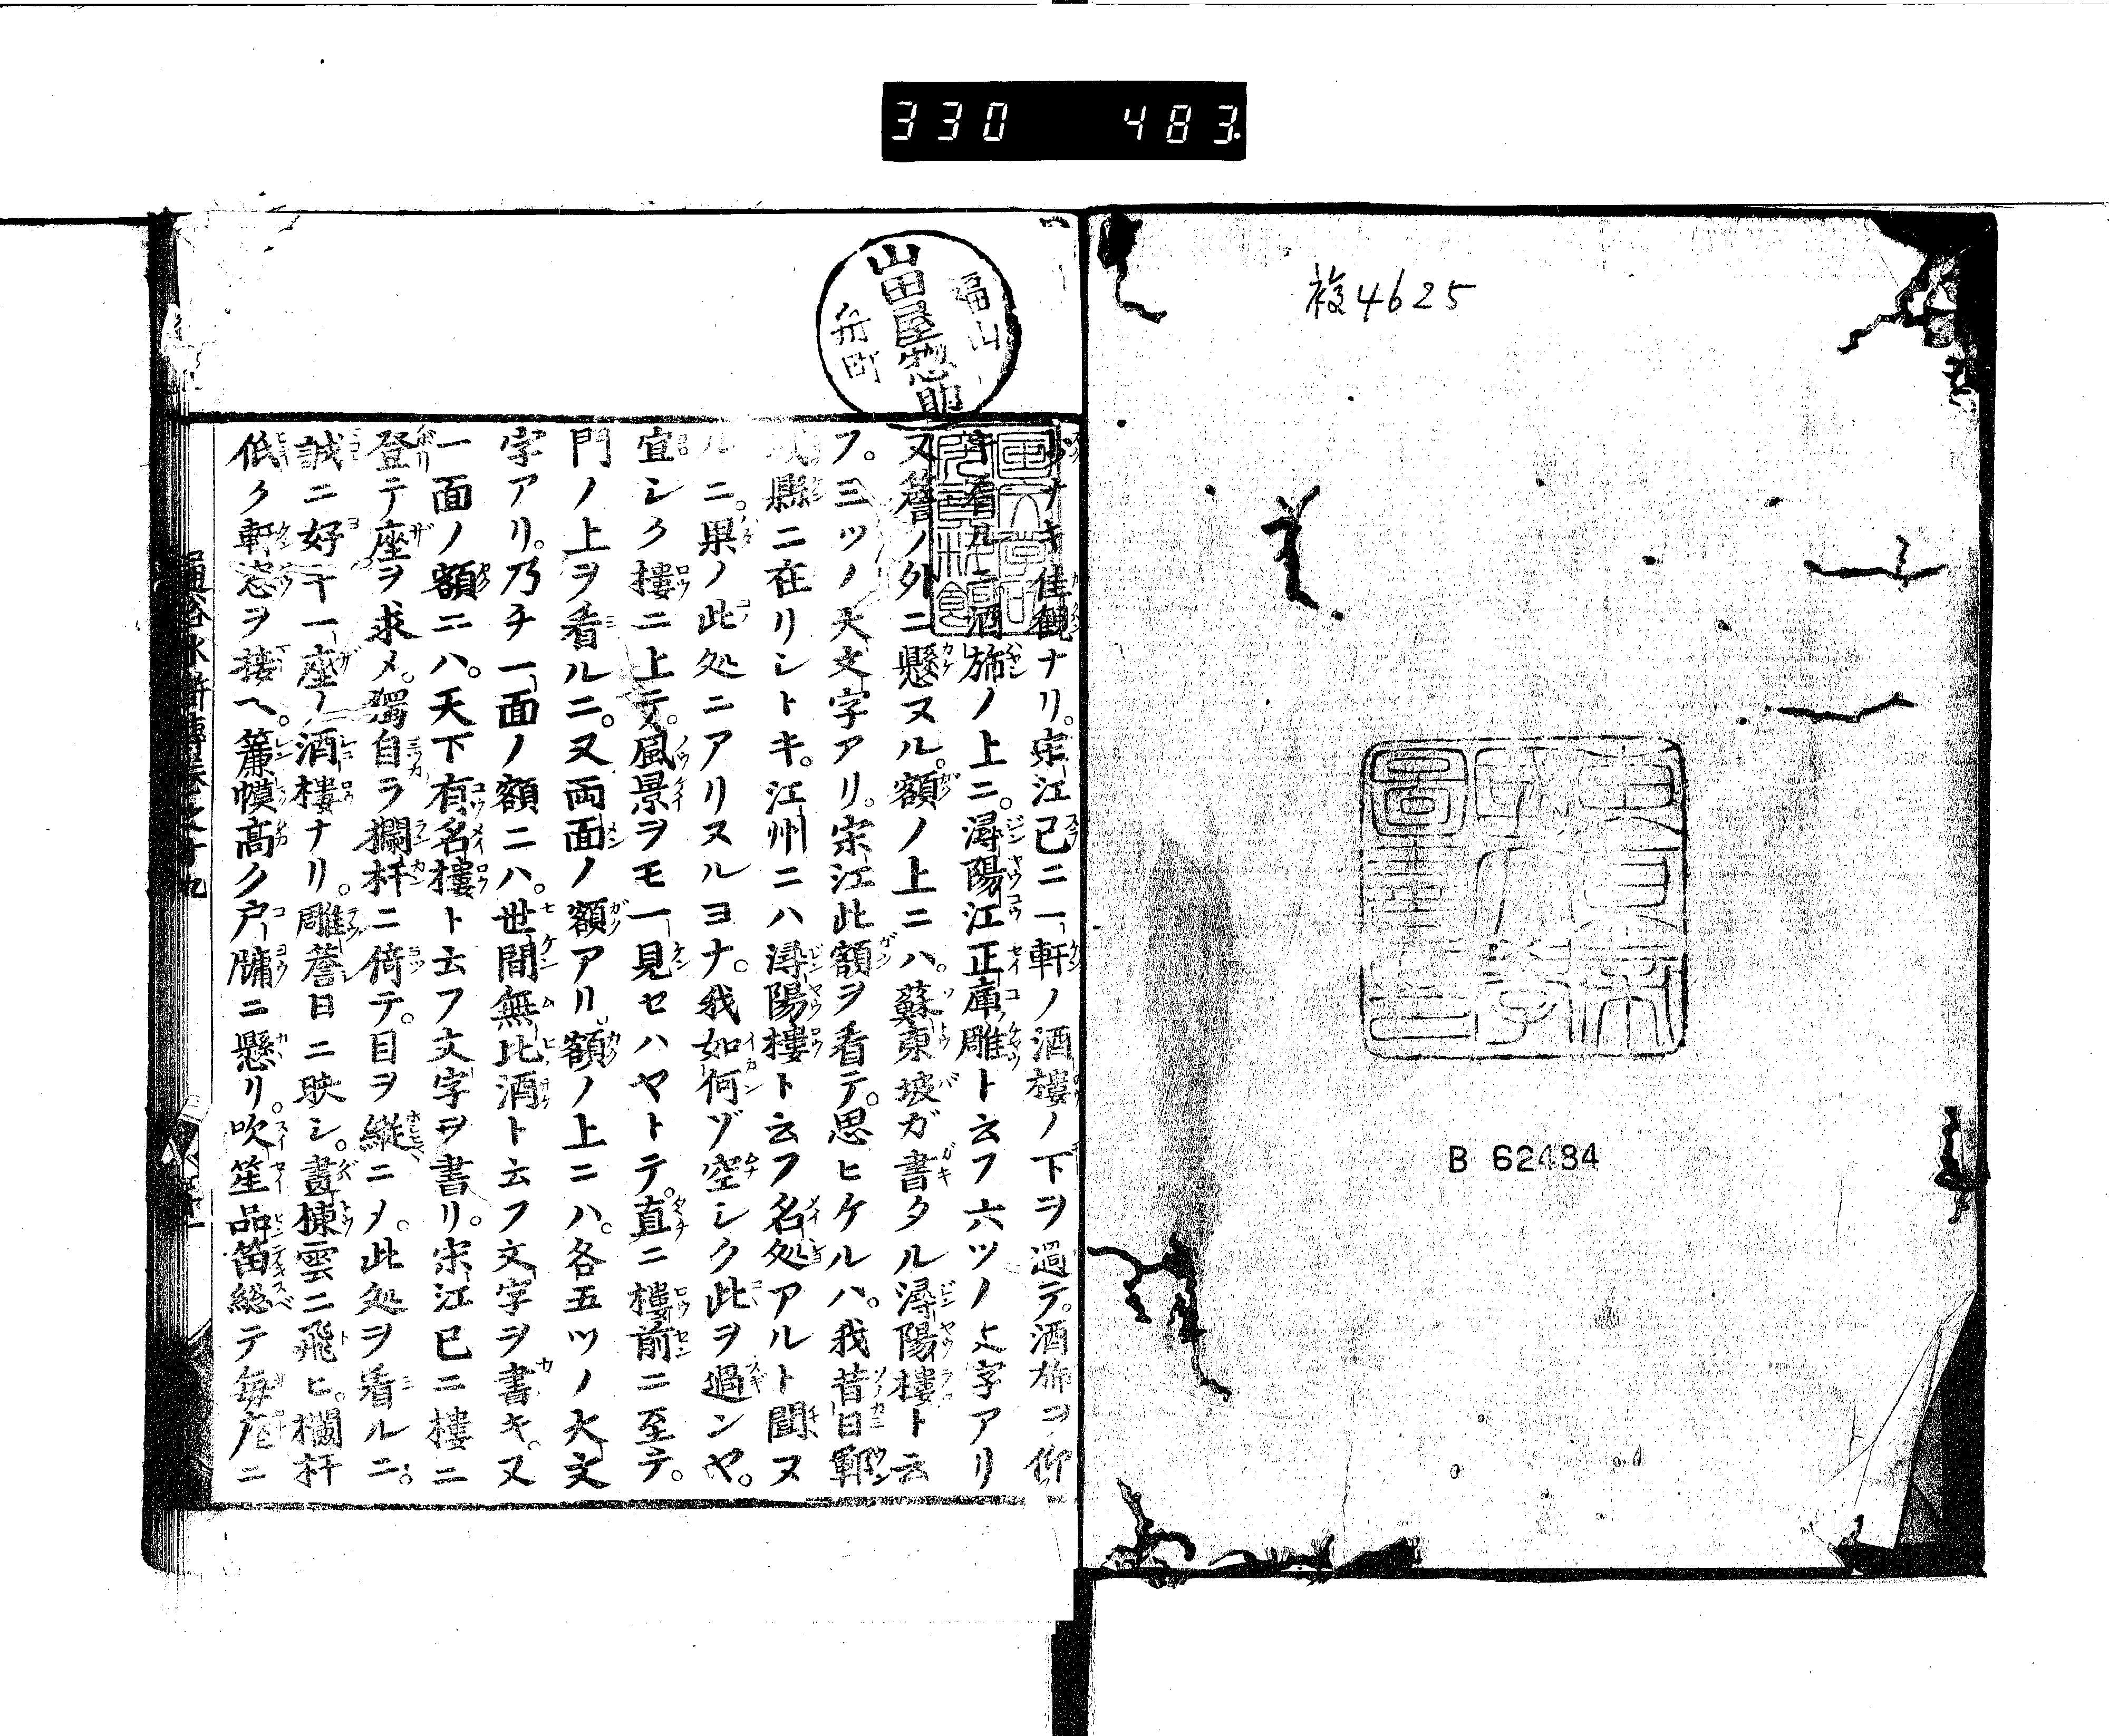 330 483.
複4625
東京帝
国大學
圖書印
B 62484
福山
山田屋惣助
舟町
ナキ佳観ナリ。宋江已ニ一軒ノ酒樓ノ下ヲ過テ。酒旆ヲ仰
キ看ルニ酒旆ノ上ニ。潯陽江正庫雕ト云フ六ツノ文字アリ
又簷ノ外ニ懸ヌル。額ノ上ニハ。蘇東坡ガ書タル潯陽樓ト云
フ。三ツノ大文字アリ。宋江此額ヲ看テ。思ヒケルハ。我昔日鄆
城縣ニ在リシトキ。江州ニハ潯陽樓ト云フ名処アルト聞ヌ
ルニ。果ノ此処ニアリヌルヨナ。我如何ゾ空シク此ヲ過ンヤ。
宜シク樓ニ上テ。風景ヲモ一見セハヤトテ。直ニ樓前ニ至テ。
門ノ上ヲ看ルニ。又両面ノ額アリ。額ノ上ニハ。各五ツノ大文
字アリ。乃チ一面ノ額ニハ。世間無比酒ト云フ文字ヲ書キ。又
一面ノ額ニハ。天下有名樓ト云フ文字ヲ書リ。宋江已ニ樓ニ
登テ座ヲ求メ。獨自ラ欄杆ニ倚テ。目ヲ縱ニメ。此処ヲ看ルニ。
誠ニ好キ一座ノ酒樓ナリ。雕簷日ニ映シ。畫棟雲ニ飛ヒ。欄杆
低ク軒窓ヲ接ヘ。簾幙高ク戸牖ニ懸リ。吹笙品笛総テ毎座ニ
通俗水滸傳巻之十九